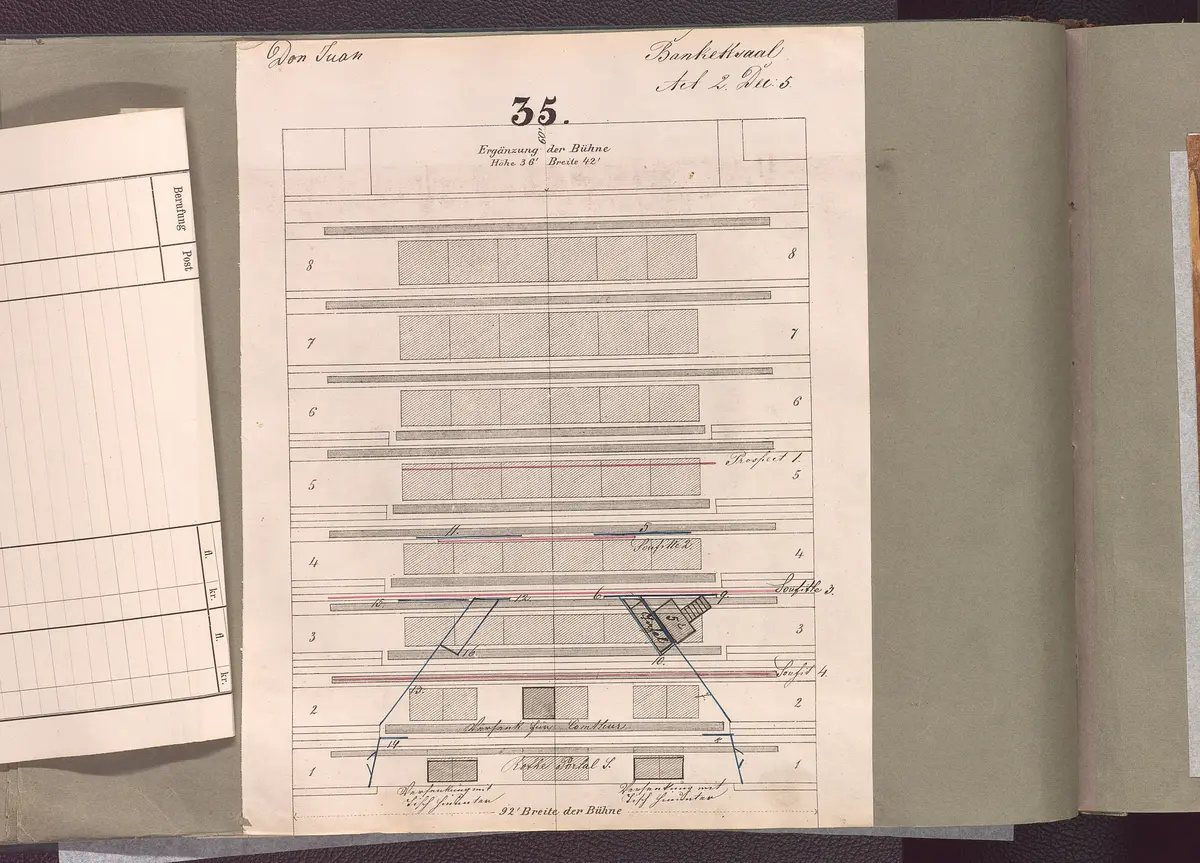 Don Juan
Bankettsaal
Act 2. Dec: 5.
35.
Ergänzung der Bühne
Höhe 36' Breite 42'
8 8
7 7
6 6
Prospect 1.
5 5
11. 5.
Souffitte 2.
4 4
Souffitte 3.
15. 12. 6. 9.
Tafel 5'
3 3
16. 10.
Souffit 4.
13.
2 2
Versenk für Comthur
14.
Rothe Portal S.
1 1
Versenkung mit
Tisch hinunter
Versenkung mit
Tisch hinunter
92' Breite der Bühne
Berufung
Post
fl. kr.
fl. kr.